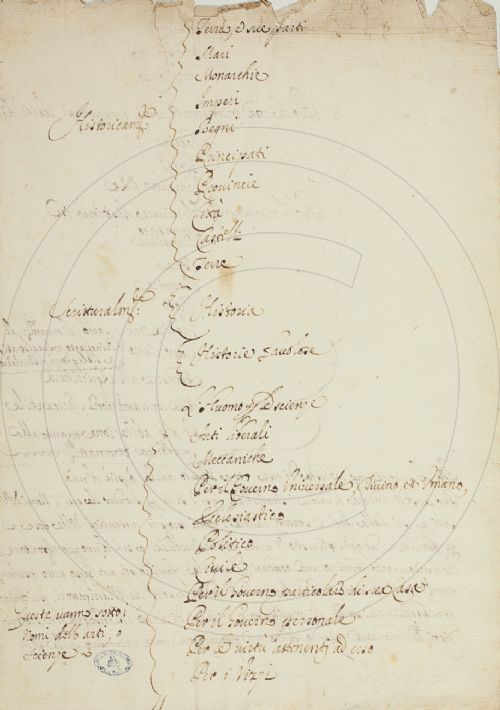 Terra e sue parti
Mari
Monarchie
Imperi
Historicam.te
Regni
Principati
Provincie
Città
Castelli
Terre
Historia
Historie favolose
L'Huomo Scienze
Arti liberali
Meccaniche
Per il Governo Universale, Divino et Umano,
Ecclesiastico
Politico
Civile
Per il Governo particolare di sua Casa
Queste vanno sotto i
Per il Governo personale
Nomi dell'arti, o
Scienze
Per le Virtù attenenti ad esso
Per i Vizzi